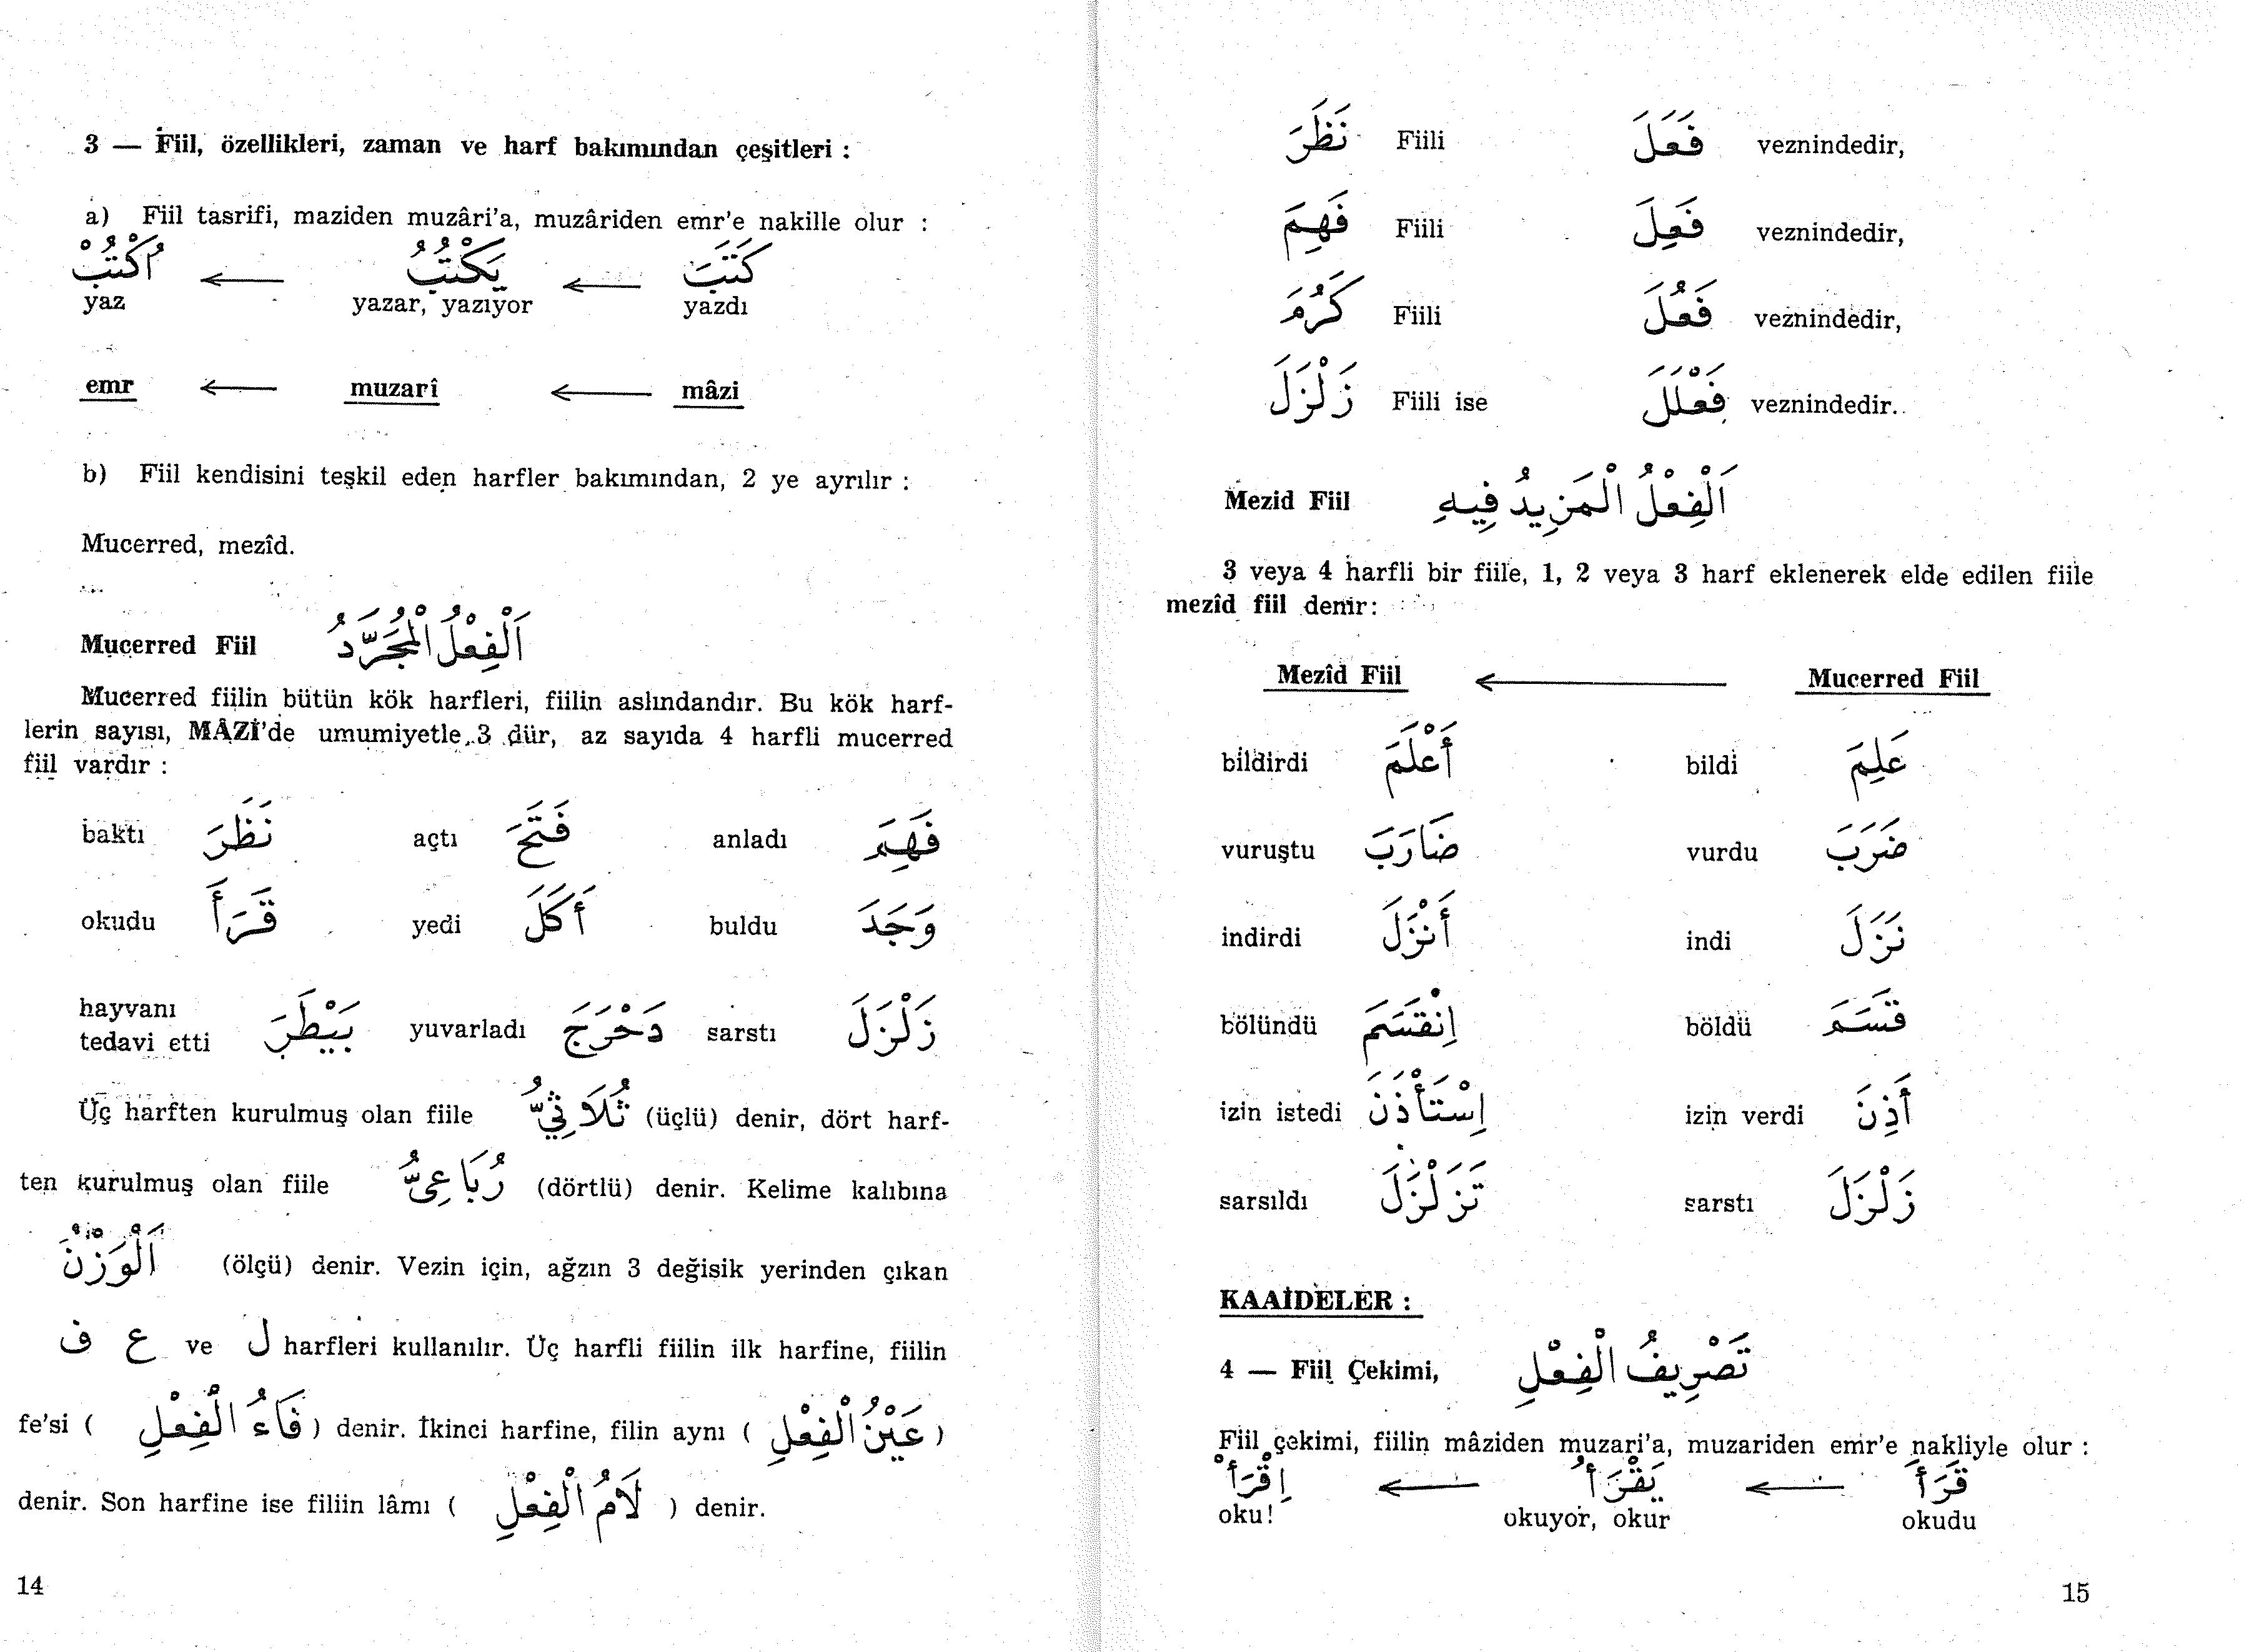 3 — Fiil, özellikleri, zaman ve harf bakımından çeşitleri :
a) Fiil tasrifi, maziden muzâri'a, muzâriden emr'e nakille olur :
اُكْتُبْ ← يَكْتُبُ ← كَتَبَ
yaz yazar, yazıyor yazdı
emr ← muzarî ← mâzi
b) Fiil kendisini teşkil eden harfler bakımından, 2 ye ayrılır :
Mucerred, mezîd.
Mucerred Fiil اَلْفِعْلُ الْمُجَرَّدُ
Mucerred fiilin bütün kök harfleri, fiilin aslındandır. Bu kök harf-
lerin sayısı, MÂZİ'de umumiyetle 3 dür, az sayıda 4 harfli mucerred
fiil vardır :
baktı نَظَرَ açtı فَتَحَ anladı فَهِمَ
okudu قَرَأَ yedi أَكَلَ buldu وَجَدَ
hayvanı
tedavi etti بَيْطَرَ yuvarladı دَحْرَجَ sarstı زَلْزَلَ
Üç harften kurulmuş olan fiile ثُلَاثِيٌّ (üçlü) denir, dört harf-
ten kurulmuş olan fiile رُبَاعِيٌّ (dörtlü) denir. Kelime kalıbına
اَلْوَزْنُ (ölçü) denir. Vezin için, ağzın 3 değişik yerinden çıkan
ف ع ve ل harfleri kullanılır. Üç harfli fiilin ilk harfine, fiilin
fe'si ( فَاءُ الْفِعْلِ ) denir. İkinci harfine, filin aynı ( عَيْنُ الْفِعْلِ )
denir. Son harfine ise filiin lâmı ( لَامُ الْفِعْلِ ) denir.
14
نَظَرَ Fiili فَعَلَ veznindedir,
فَهِمَ Fiili فَعِلَ veznindedir,
كَرُمَ Fiili فَعُلَ veznindedir,
زَلْزَلَ Fiili ise فَعْلَلَ veznindedir..
Mezid Fiil اَلْفِعْلُ الْمَزِيدُ فِيهِ
3 veya 4 harfli bir fiile, 1, 2 veya 3 harf eklenerek elde edilen fiile
mezîd fiil denir:
Mezîd Fiil ← Mucerred Fiil
bildirdi أَعْلَمَ bildi عَلِمَ
vuruştu ضَارَبَ vurdu ضَرَبَ
indirdi أَنْزَلَ indi نَزَلَ
bölündü اِنْقَسَمَ böldü قَسَمَ
izin istedi اِسْتَأْذَنَ izin verdi أَذِنَ
sarsıldı تَزَلْزَلَ sarstı زَلْزَلَ
KAAİDELER :
4 — Fiil Çekimi, تَصْرِيفُ الْفِعْلِ
Fiil çekimi, fiilin mâziden muzari'a, muzariden emr'e nakliyle olur :
اِقْرَأْ ← يَقْرَأُ ← قَرَأَ
oku! okuyor, okur okudu
15